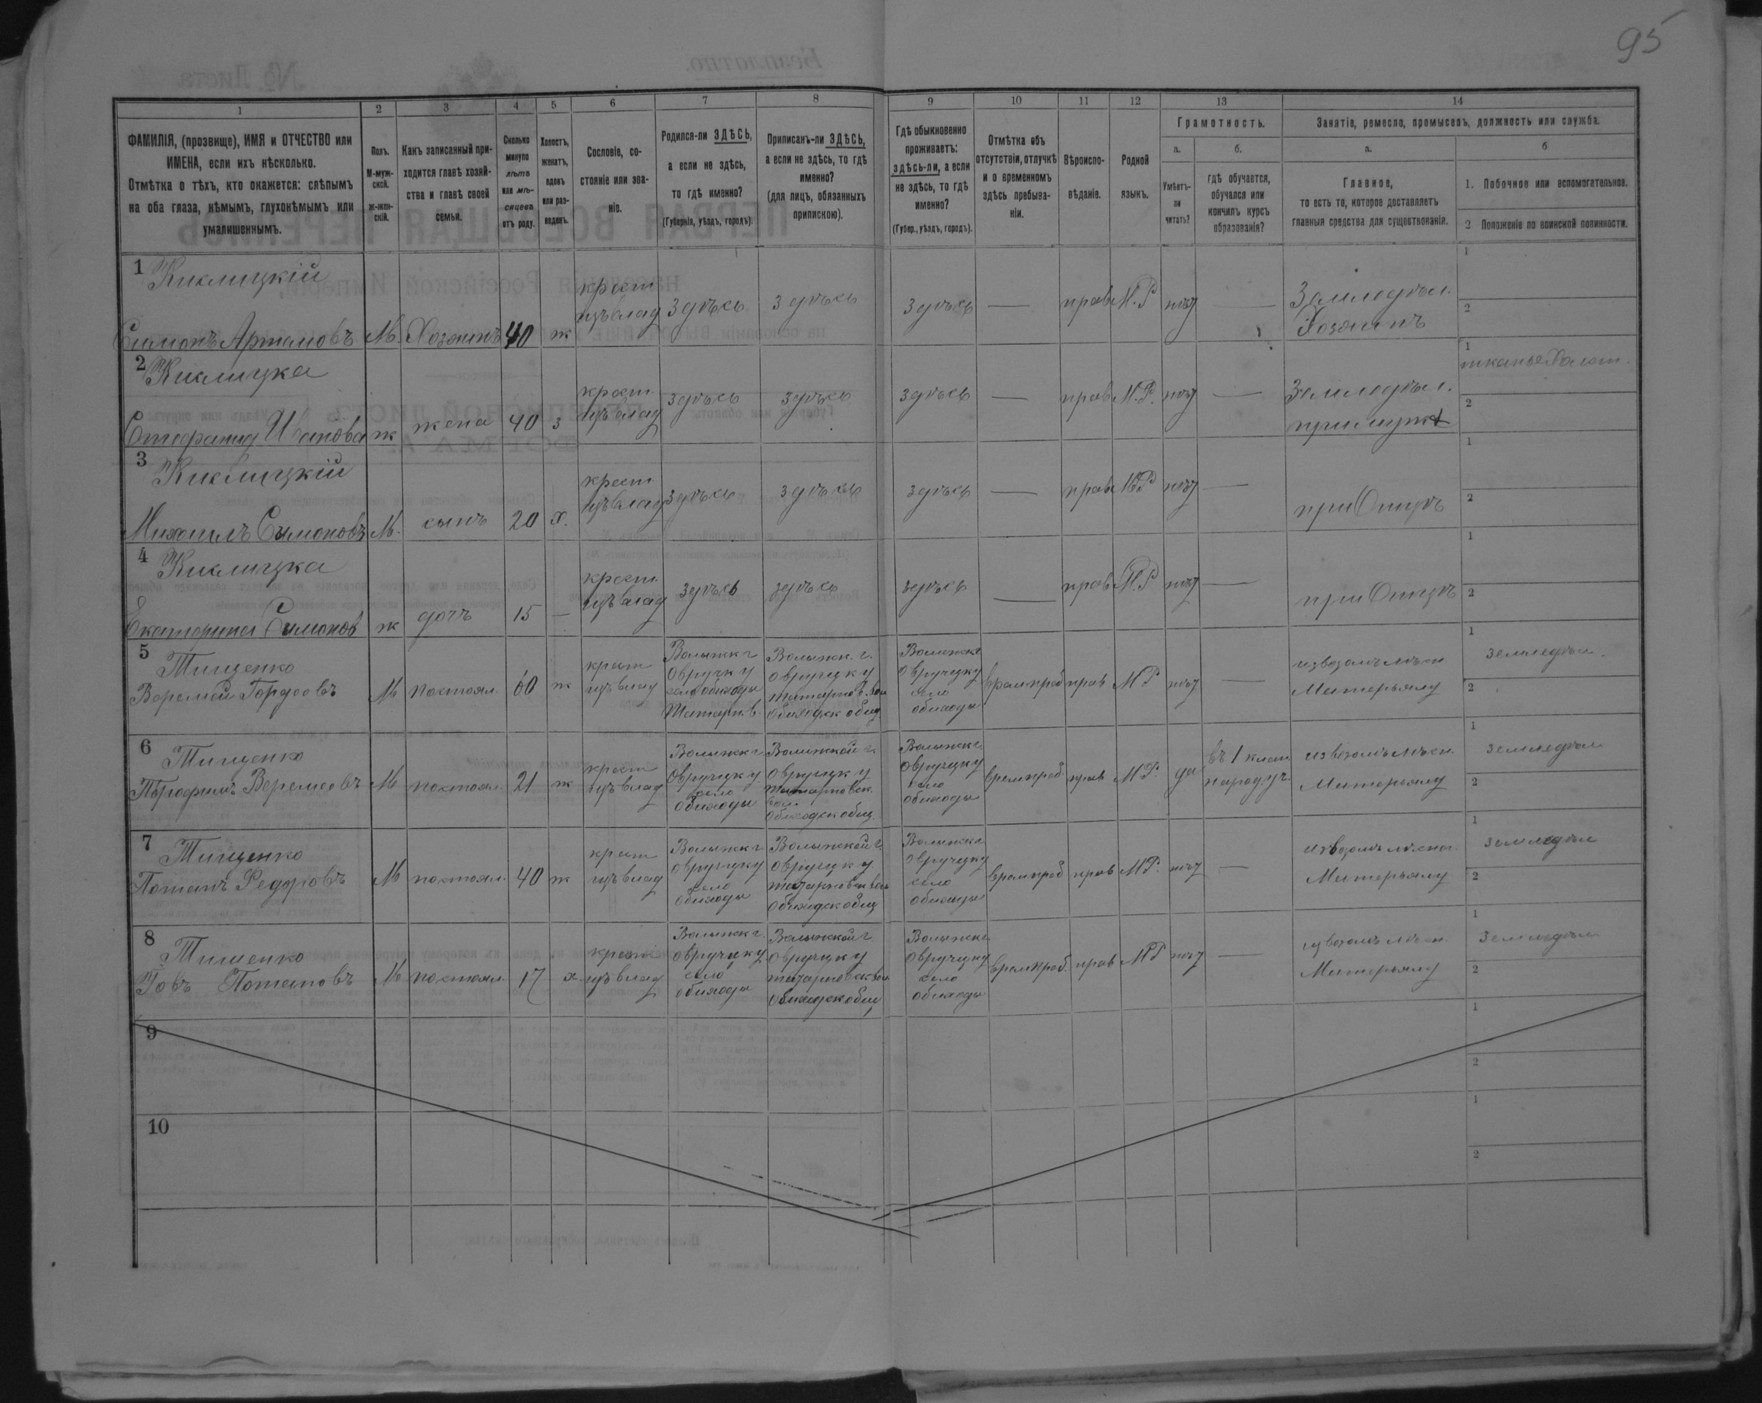 95
1 2 3 4 5 6 7 8 9 10 11 12 13 14
ФАМИЛІЯ, (прозвище), ИМЯ и ОТЧЕСТВО или
ИМЕНА, если ихъ нѣсколько.
Отмѣтка о тѣхъ, кто окажется: слѣпымъ
на оба глаза, нѣмымъ, глухонѣмымъ или
умалишеннымъ.
Полъ.
М-муж-
ской.
Ж-жен-
скій.
Какъ записанный при-
ходится главѣ хозяй-
ства и главѣ своей
семьи.
Сколько
минуло
лѣтъ
или мѣ-
сяцевъ
отъ роду.
Холостъ,
женатъ,
вдовъ
или раз-
веденъ.
Сословіе, со-
стояніе или зва-
ніе.
Родился-ли ЗДѢСЬ,
а если не здѣсь,
то гдѣ именно?
(Губернія, уѣздъ, городъ).
Приписанъ-ли ЗДѢСЬ,
а если не здѣсь, то гдѣ
именно?
(для лицъ, обязанныхъ
припискою).
Гдѣ обыкновенно
проживаетъ:
здѣсь-ли, а если
не здѣсь, то гдѣ
именно?
(Губер., уѣздъ, городъ).
Отмѣтка объ
отсутствіи, отлучкѣ
и о временномъ
здѣсь пребыва-
ніи.
Вѣроиспо-
вѣданіе.
Родной
языкъ.
Грамотность.
а.
Умѣетъ-
ли
читать?
б.
гдѣ обучается,
обучался или
кончилъ курсъ
образованія?
Занятіе, ремесло, промыселъ, должность или служба.
а.
Главное,
то есть то, которое доставляетъ
главныя средства для существованія.
б
1. Побочное или вспомогательное.
2 Положеніе по воинской повинности.
1 Киклицкій
Симонъ Артамовъ М. Хозяинъ 40 ж
крест
изъ влад здѣсь здѣсь здѣсь — прав М.Р нѣт —
Земледѣл.
Хозяинъ
1
2
2 Киклицка
Степанида Иванова ж жена 40 з
крест
изъ влад здѣсь здѣсь здѣсь — прав М.Р. нѣт —
Земледѣл.
при мужѣ
1
2
3 Киклицкій
Михаилъ Симоновъ М. сынъ 20 х.
крест
изъ влад здѣсь здѣсь здѣсь — прав МР нѣт —
при Отцѣ
1
2
4 Киклицка
Екатерина Симонов ж дочь 15 —
крест
изъ влад здѣсь здѣсь здѣсь — прав М.Р нѣт —
при Отцѣ
1
2
5 Тищенко
Веремій Гордеевъ М постоял. 60 ж
крест
изъ влад
Волынск г
Овручу
село обиходы
Волынск. г.
овручу
обиходск общ
Волынск г
овручу
село
обиходы
врем преб прав МР нѣт —
извозомъ лѣсн
Матерьялу
1 земледѣл.
2
6 Тищенко
Трофимъ Веремеевъ М постоял. 21 ж
крест
изъ влад
Волынск г
Овручу
село
обиходы
Волынской г
овручу
обиходск общ
Волынск г
Овручу
село
обиходы
врем преб прав МР. да
въ 1 клас
народ уч
извозомъ лѣсн
Матерьялу
1 земледѣл
2
7 Тищенко
Потапъ Федоровъ М постоял. 40 ж
крест
изъ влад
Волынск г
овручу
село
обиходы
Волынской г
овручу
обиходск общ
Волынск г
овручу
село
обиходы
врем преб прав МР. нѣт —
извозомъ лѣсн
Матерьялу
1 земледѣл
2
8 Тищенко
Іовъ Потаповъ М постоял. 17 х
крест
изъ влад
Волынск г
овручу
село
обиходы
Волынской г
овручу
обиходск общ
Волынск г
овручу
село
обиходы
врем преб прав МР нѣт —
извозомъ лѣсн
Матерьялу
1 земледѣл
2
9
1
2
10
1
2